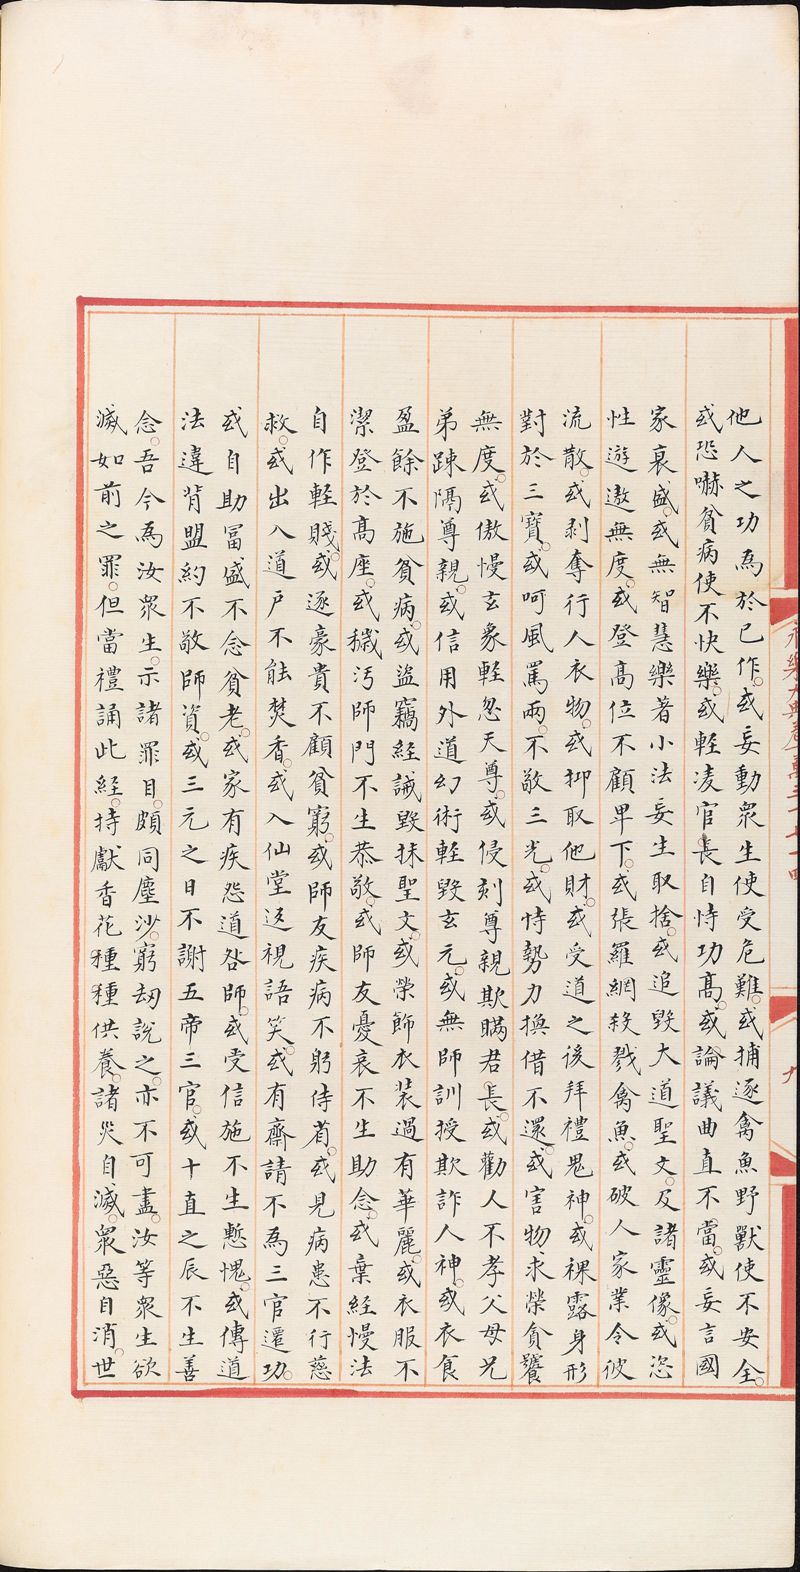 他人之功爲於已作。或妄動衆生使受危難。或捕逐禽魚野獸使不安全。
或恐嚇貧病使不快樂。或輕凌官長自恃功髙。或論議曲直不當。或妄言國
家衰盛。或無智慧樂著小法妄生取捨。或追毀大道聖文。及諸靈像。或恣
性遊遨無度。或登髙位不顧卑下。或張羅網殺戮禽魚。或破人家業令彼
流散。或剥奪行人衣物。或抑取他財。或受道之後拜禮鬼神。或裸露身形
對於三寳。或呵風罵雨。不敬三光。或恃勢力換借不還。或害物求榮貪饕
無度。或傲慢玄象輕忽天尊。或侵刻尊親欺瞞君長。或勸人不孝父母兄
弟踈隔尊親。或信用外道幻術輕毀玄元。或無師訓授欺詐人神。或衣食
盈餘不施貧病。或盗竊經誡毀抹聖文。或榮飾衣装過有華麗。或衣服不
潔登於髙座。或穢汚師門不生恭敬。或師友憂哀不生助念。或棄經慢法
自作輕賤。或逐豪貴不顧貧窮。或師友疾病不躬侍省。或見病患不行慈
救。或出入道戸不能焚香。或入仙堂返視語笑。或有齋請不爲三官遷功。
或自助冨盛不念貧老。或家有疾怨道咎師。或受信施不生慙愧。或傳道
法違背盟約不敬師資。或三元之日不謝五帝三官。或十直之辰不生善
念。吾今爲汝衆生。示諸罪目。頗同塵沙。窮刼說之。亦不可盡。汝等衆生欲
滅如前之罪。但當禮誦此經。持獻香花種種供養。諸災自滅。衆惡自消。世